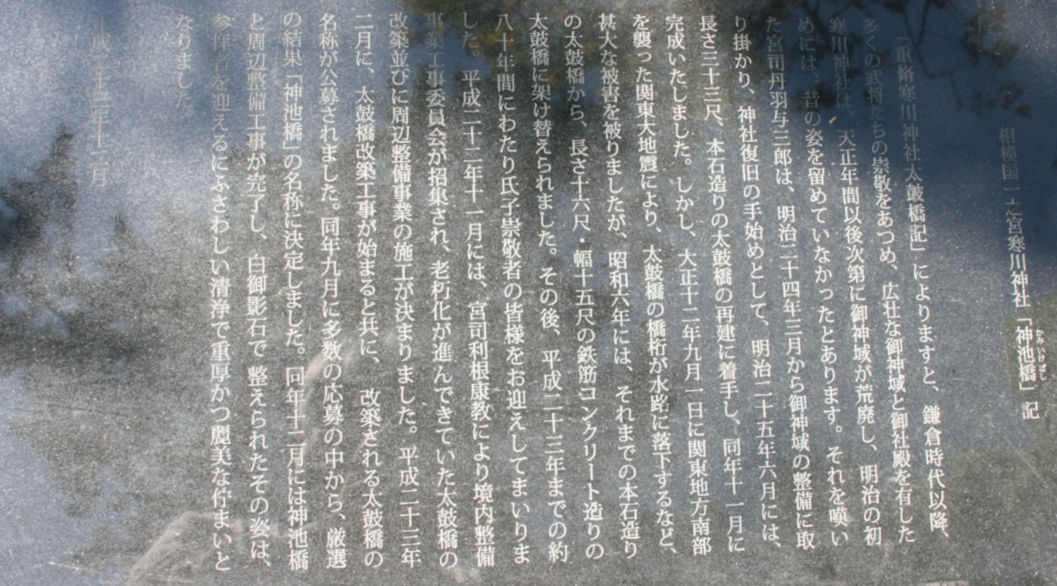 相模国一之宮寒川神社「神池橋」記
「重脩寒川神社太鼓橋記」によりますと、鎌倉時代以降、
多くの武将たちの崇敬をあつめ、広壮な御神域と御社殿を有した
寒川神社は、天正年間以後次第に御神域が荒廃し、明治の初
めには、昔の姿を留めていなかったとあります。それを嘆い
た宮司丹羽与三郎は、明治二十四年三月から御神域の整備に取
り掛かり、神社復旧の手始めとして、明治二十五年六月には、
長さ三十三尺、本石造りの太鼓橋の再建に着手し、同年十一月に
完成いたしました。しかし、大正十二年九月一日に関東地方南部
を襲った関東大地震により、太鼓橋の橋桁が水路に落下するなど、
甚大な被害を被りましたが、昭和六年には、それまでの本石造り
の太鼓橋から、長さ十六尺・幅十五尺の鉄筋コンクリート造りの
太鼓橋に架け替えられました。その後、平成二十三年までの約
八十年間にわたり氏子崇敬者の皆様をお迎えしてまいりま
した。平成二十二年十一月には、宮司利根康教により境内整備
事業工事委員会が招集され、老朽化が進んできていた太鼓橋の
改築並びに周辺整備事業の施工が決まりました。平成二十三年
二月に、太鼓橋改築工事が始まると共に、改築される太鼓橋の
名称が公募されました。同年九月に多数の応募の中から、厳選
の結果「神池橋」の名称に決定しました。同年十二月には神池橋
と周辺整備工事が完了し、白御影石で整えられたその姿は、
参拝者を迎えるにふさわしい清浄で重厚かつ麗美な佇まいと
なりました。
平成二十三年十二月